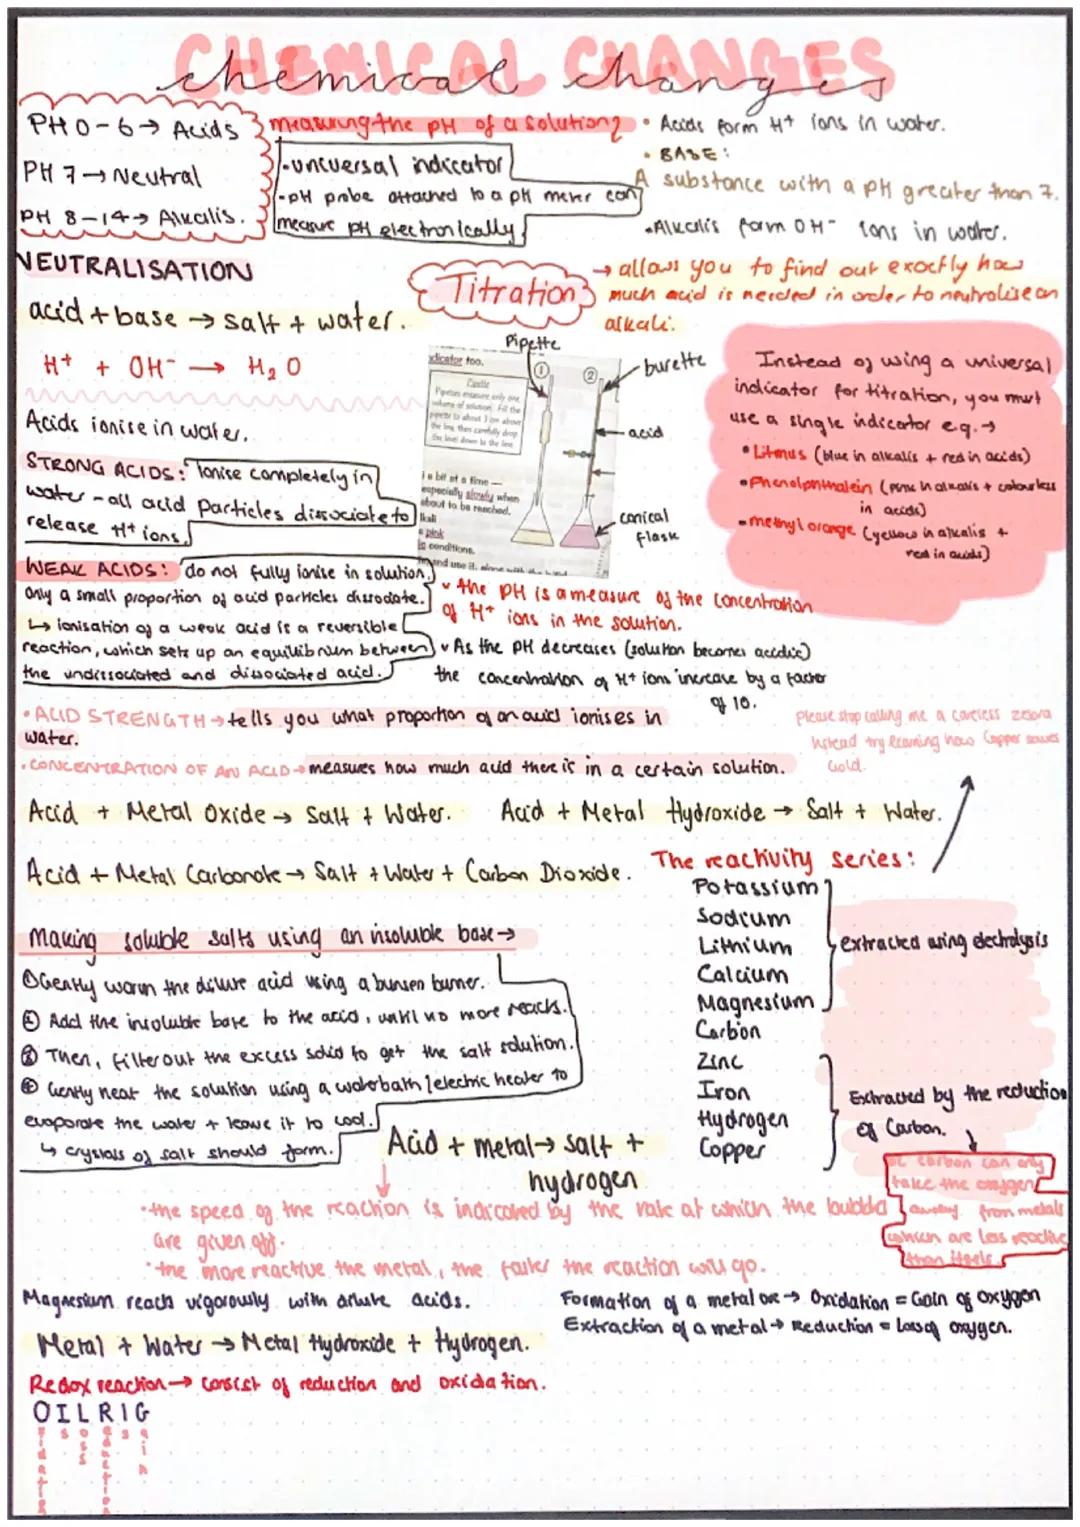 CHEMICAL CHANGES
chemical changes
PH 0-6 → Acids
PH 7 → Neutral
PH 8-14 → Alkalis.
measuring the pH of a solution?
-universal indicator
-pH probe attached to a pH meter can
measure pH electronically.
• Acids form H+ ions in water.
• BASE:
A substance with a pH greater than 7.
•Alkalis form OH- ions in water.
NEUTRALISATION
acid + base → salt + water.
H+ + OH- → H2O
Titration
→ allows you to find out exactly how
much acid is needed in order to neutralise an
alkali.
Pipette
burette
acid
conical
flask
①
②
dicator too.
Pipettes measure only one
volume of solution. Fill the
pipette to about 3 cm above
the line, then carefully drop
the level down to the line.
a bit at a time —
especially slowly when
about to be reached.
lkali
pink
conditions.
Instead of using a universal
indicator for titration, you must
use a single indicator e.g. →
• Litmus (blue in alkalis + red in acids)
• Phenolphthalein (pink in alkalis + colourless
in acids)
• methyl orange (yellow in alkalis +
red in acids)
Acids ionise in water.
STRONG ACIDS: Ionise completely in
water - all acid particles dissociate to
release H+ ions.
WEAK ACIDS: do not fully ionise in solution.
Only a small proportion of acid particles dissociate.
↳ ionisation of a weak acid is a reversible
reaction, which sets up an equilibrium between
the undissociated and dissociated acid.
v the PH is a measure of the concentration
of H+ ions in the solution.
v As the PH decreases (solution becomes acidic)
the concentration of H+ ions increase by a factor
of 10.
• ACID STRENGTH → tells you what proportion of an acid ionises in
water.
• CONCENTRATION OF AN ACID → measures how much acid there is in a certain solution.
Please stop calling me a careless zebra
Instead try learning how Copper saves
Gold.
Acid + Metal Oxide → Salt + Water.
Acid + Metal Hydroxide → Salt + Water.
Acid + Metal Carbonate → Salt + Water + Carbon Dioxide.
The reactivity series:
Potassium
Sodium
Lithium
Calcium
Magnesium
Carbon
Zinc
Iron
Hydrogen
Copper
extracted using electrolysis
Extracted by the reduction
of Carbon.
bc carbon can only
take the oxygen
away from metals
which are less reactive
than itself.
Making soluble salts using an insoluble base →
① Gently warm the dilute acid using a bunsen burner.
② Add the insoluble base to the acid, until no more reacts.
③ Then, filter out the excess solid to get the salt solution.
④ Gently heat the solution using a waterbath / electric heater to
evaporate the water + leave it to cool.
↳ crystals of salt should form.
Acid + metal → salt +
hydrogen
•the speed of the reaction is indicated by the rate at which the bubbles
are given off.
•the more reactive the metal, the faster the reaction will go.
Magnesium reacts vigorously with dilute acids.
Metal + Water → Metal Hydroxide + Hydrogen.
Formation of a metal ore → Oxidation = Gain of oxygen
Extraction of a metal → Reduction = Loss of oxygen.
Redox reaction → consist of reduction and oxidation.
OILRIG
oxidation
is
loss
reduction
is
gain